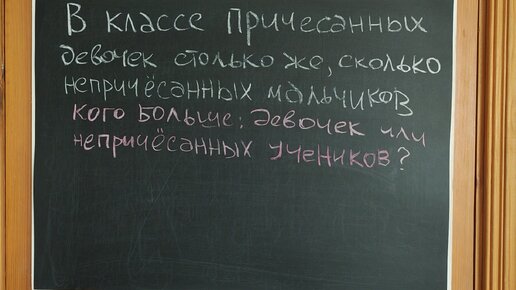 В классе причесанных
девочек столько же, сколько
непричёсанных мальчиков
кого больше: девочек или
непричёсанных учеников?